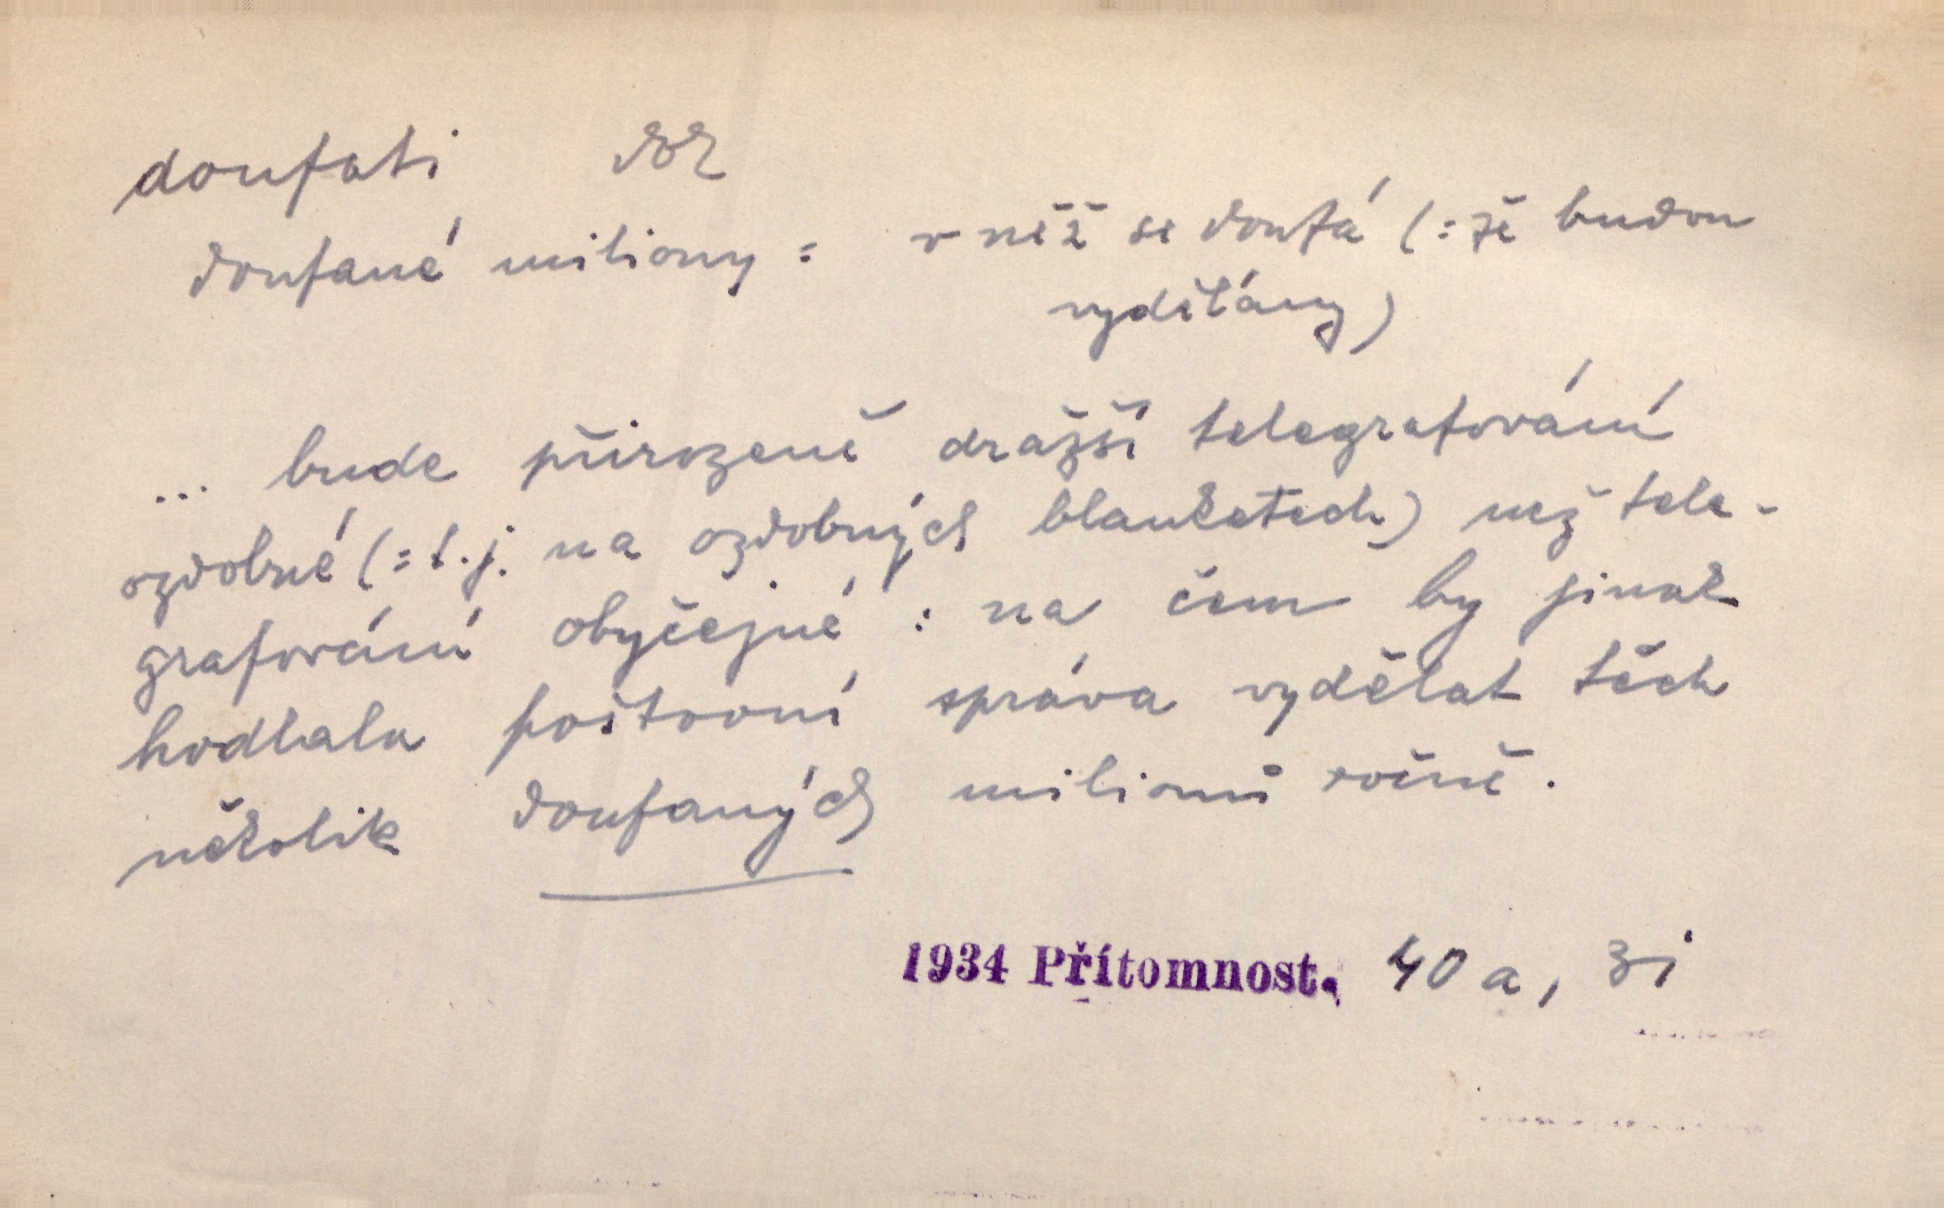 doufati
doufané miliony = v něž se doufá (= že budou
vydělány)
... bude přirozeně dražší telegrafování
ozdobné (= t.j. na ozdobných blanketech) než tele-
grafování obyčejné : na čem by jinak
hodlala poštovní správa vydělat těch
několik doufaných milionů ročně.
1934 Přítomnost. 40 a, 3i